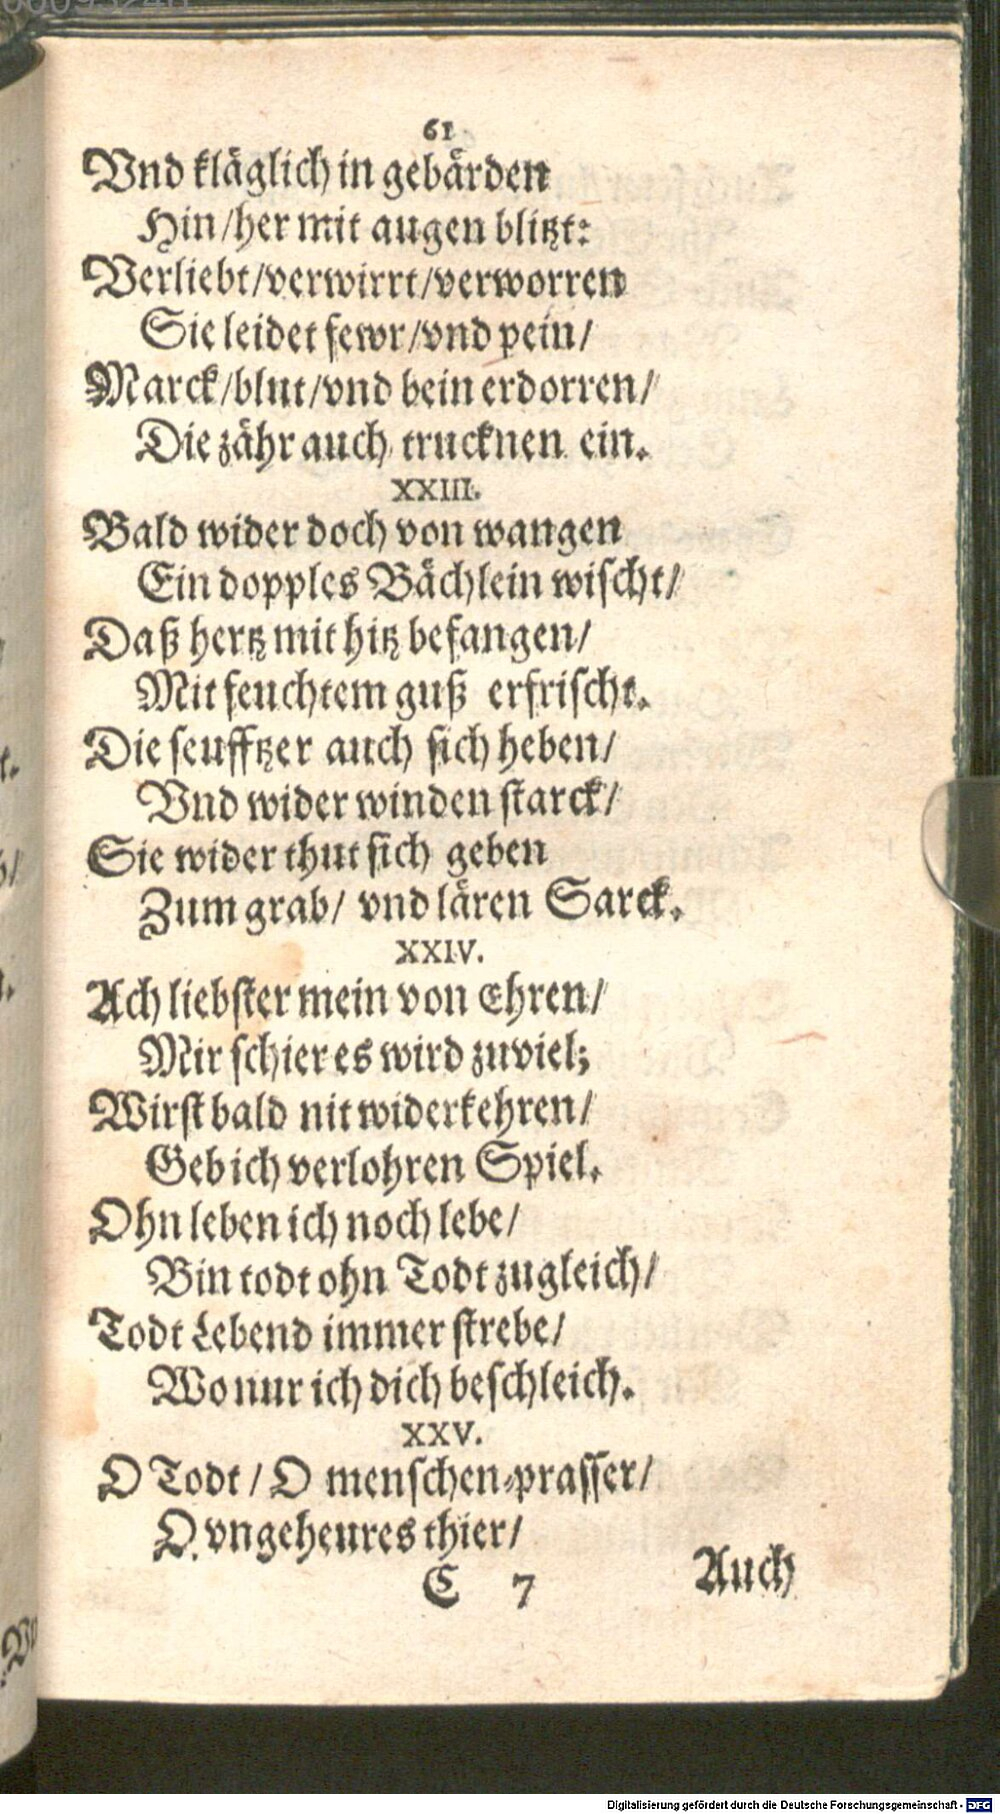 61
Vnd kläglich in gebärden
Hin/her mit augen blitzt:
Verliebt/verwirrt/verworren
Sie leidet fewr/vnd pein/
Marck/blut/vnd bein erdorren/
Die zähr auch trucknen ein.
XXIII.
Bald wider doch von wangen
Ein dopples Bächlein wischt/
Daß hertz mit hitz befangen/
Mit feuchtem guß erfrischt.
Die seufftzer auch sich heben/
Vnd wider winden starck/
Sie wider thut sich geben
Zum grab/ vnd lären Sarck.
XXIV.
Ach liebster mein von Ehren/
Mir schier es wird zuviel;
Wirst bald nit widerkehren/
Geb ich verlohren Spiel.
Ohn leben ich noch lebe/
Bin todt ohn Todt zugleich/
Todt Lebend immer strebe/
Wo nur ich dich beschleich.
XXV.
O Todt/ O menschen-prasser/
O vngeheures thier/
C 7 Auch
Digitalisierung gefördert durch die Deutsche Forschungsgemeinschaft - DFG